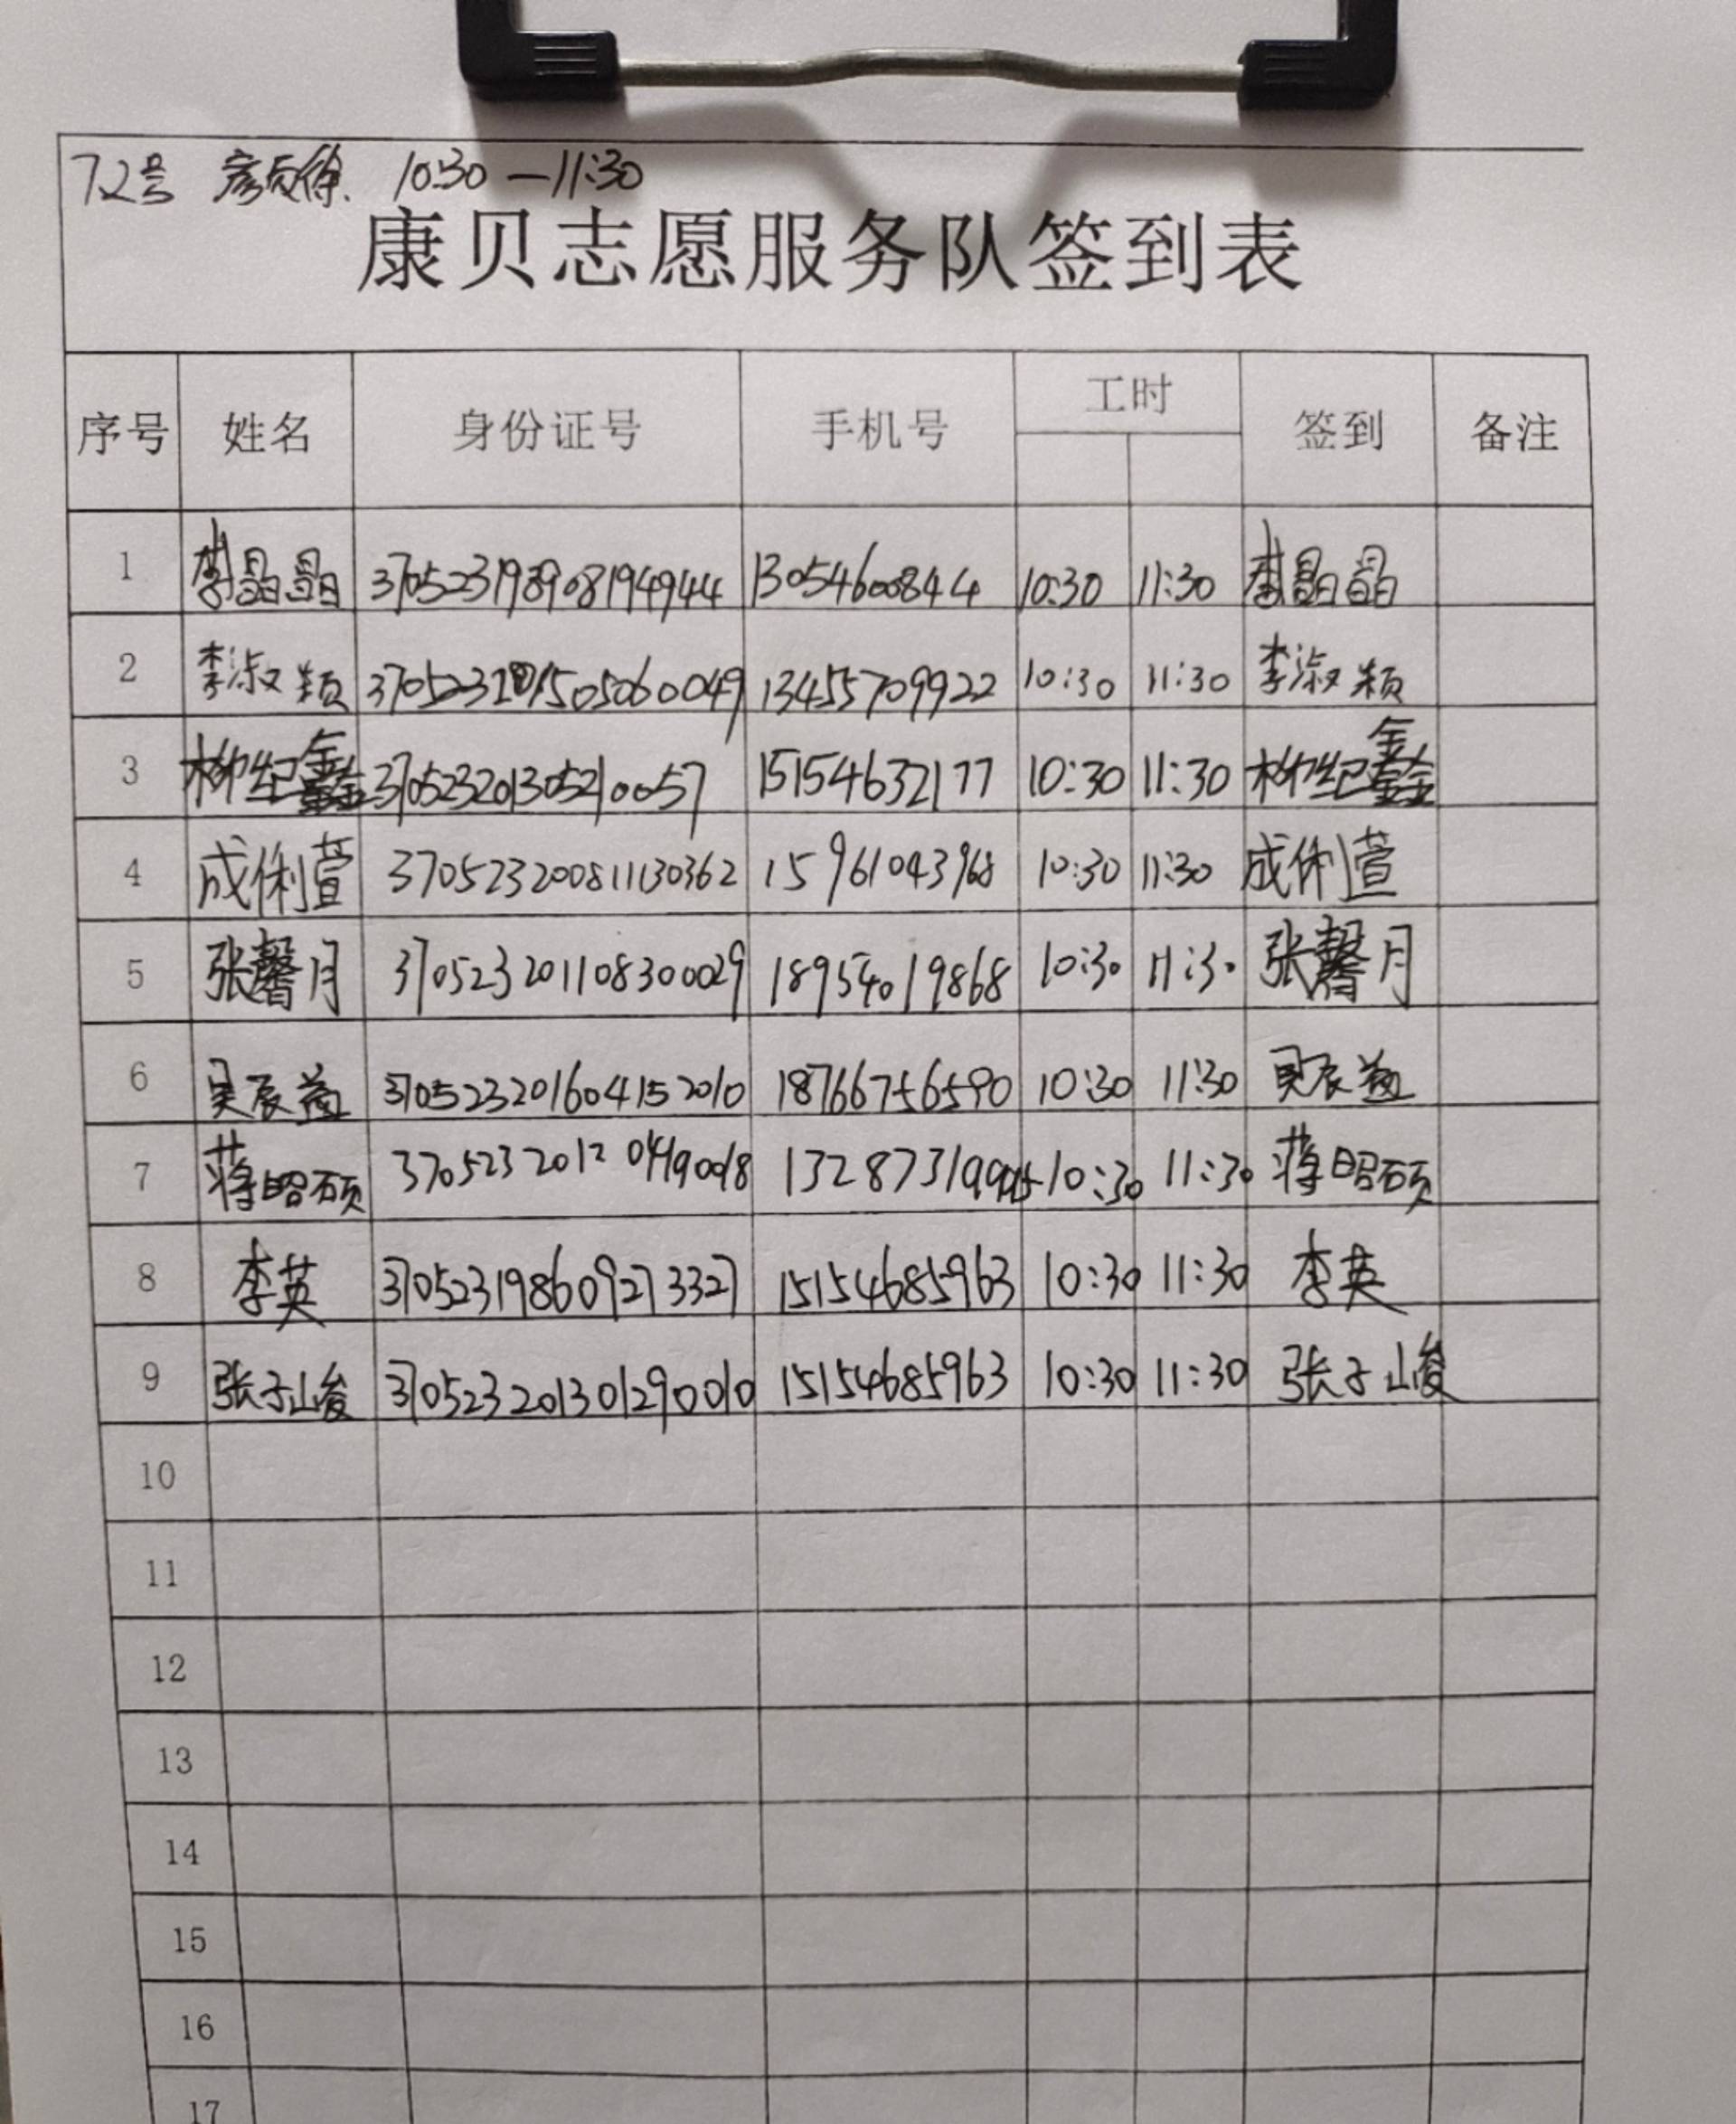 72号 10:30—11:30
康贝志愿服务队签到表
序号 姓名 身份证号 手机号 工时 签到 备注
1 李晶晶 370523198908194944 13054600844 10:30 11:30 李晶晶
2 李淑颖 370523201505060049 13455709922 10:30 11:30 李淑颖
3 柳纪鑫 370523201305210057 15154632177 10:30 11:30 柳纪鑫
4 成俐萱 370523200811130362 15961043968 10:30 11:30 成俐萱
5 张馨月 370523201108300029 18954019868 10:30 11:30 张馨月
6 吴辰益 370523201604152010 18766756590 10:30 11:30 吴辰益
7 蒋昭硕 370523201204190018 10:30 11:30 蒋昭硕
8 李英 370523198609273327 15154685963 10:30 11:30 李英
9 张子峻 370523201301290010 15154685963 10:30 11:30 张子峻
10
11
12
13
14
15
16
17